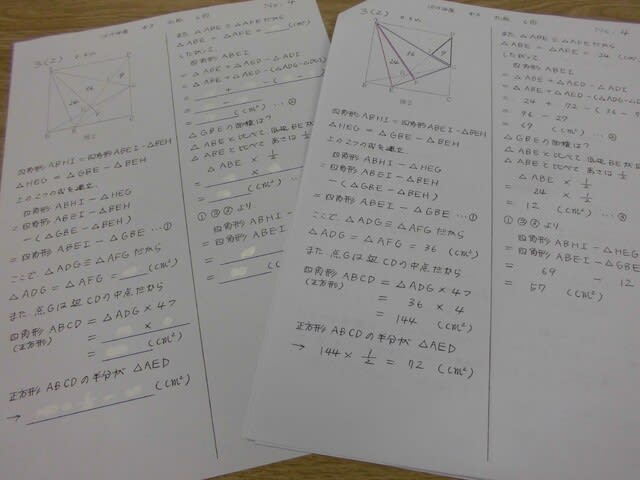 No. 4
3(2)
四角形ABHI=四角形ABEI-△BEH
△HEG = △GBE - △BEH
上の2つの式を
四角形ABHI - △HEG
= 四角形ABEI - △BEH
-(△GBE - △BEH)
= 四角形ABEI - △GBE … ①
ここで △ADG≡△AFGだから
△ADG = △AFG = (cm²)
また 点Gは辺CDの中点だから
四角形ABCD = △ADG × 4つ
(正方形)
= ×
= (cm²)
正方形ABCDの半分が△AED
→ (cm²)
また △ABE≡△AFEだから
△ABE = △AFE = (cm²)
したがって
四角形ABEI
= △ABE + △AED - △ADI
= △ABE + △AED - (△ADG-△DG
= + - ( -
= -
= (cm²) … ②
△GBEの面積は?
△ABEと比べて 底辺BEが
△ABEと比べて 高さは 1/2
△ABE × 1/2
= ×
= (cm²) …
①②③より
四角形ABHI -
= 四角形ABEI -
=
=
No. 4
3(2)
24
36
四角形ABHI=四角形ABEI-△BEH
△HEG = △GBE - △BEH
上の2つの式を
四角形ABHI - △HEG
= 四角形ABEI - △BEH
-(△GBE - △BEH)
= 四角形ABEI - △GBE … ①
ここで △ADG≡△AFGだから
△ADG = △AFG = 36 (cm²)
また 点Gは辺CDの中点だから
四角形ABCD = △ADG × 4つ
(正方形)
= 36 × 4
= 144 (cm²)
正方形ABCDの半分が△AED
→ 144 × 1/2 = 72 (cm²)
また △ABE≡△AFEだから
△ABE = △AFE = 24 (cm²)
したがって
四角形ABEI
= △ABE + △AED - △ADI
= △ABE + △AED - (△ADG-△DG
= 24 + 72 - (36 -
= 96 - 27
= 69 (cm²) … ②
△GBEの面積は?
△ABEと比べて 底辺BEが
△ABEと比べて 高さは 1/2
△ABE × 1/2
= 24 × 1/2
= 12 (cm²) … ③
①②③より
四角形ABHI - △HEG
= 四角形ABEI - △GBE
= 69 - 12
= 57 (cm²)